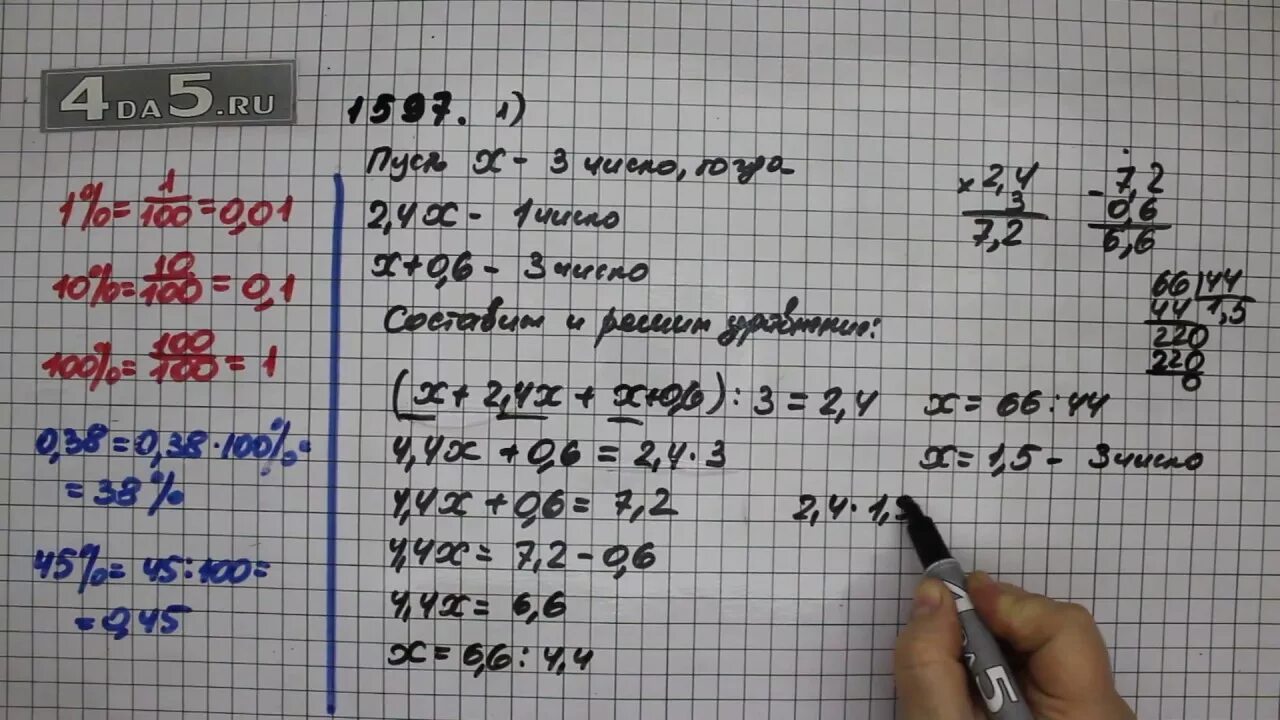 4DA5.RU
1597. 1)
Пусть x - 3 число, тогда
2,4x - 1 число
x+0,6 - 3 число
Составим и решим уравнение:
(x + 2,4x + x+0,6) : 3 = 2,4
4,4x + 0,6 = 2,4·3
4,4x + 0,6 = 7,2
4,4x = 7,2 - 0,6
4,4x = 6,6
x = 6,6 : 4,4
x = 66 : 44
x = 1,5 - 3 число
2,4·1,5
1% = 1/100 = 0,01
10% = 10/100 = 0,1
100% = 100/100 = 1
0,38 = 0,38·100% =
= 38%
45% = 45:100 =
= 0,45
× 2,4
3
7,2
- 7,2
0,6
6,6
66 | 44
44 1,5
220
220
0